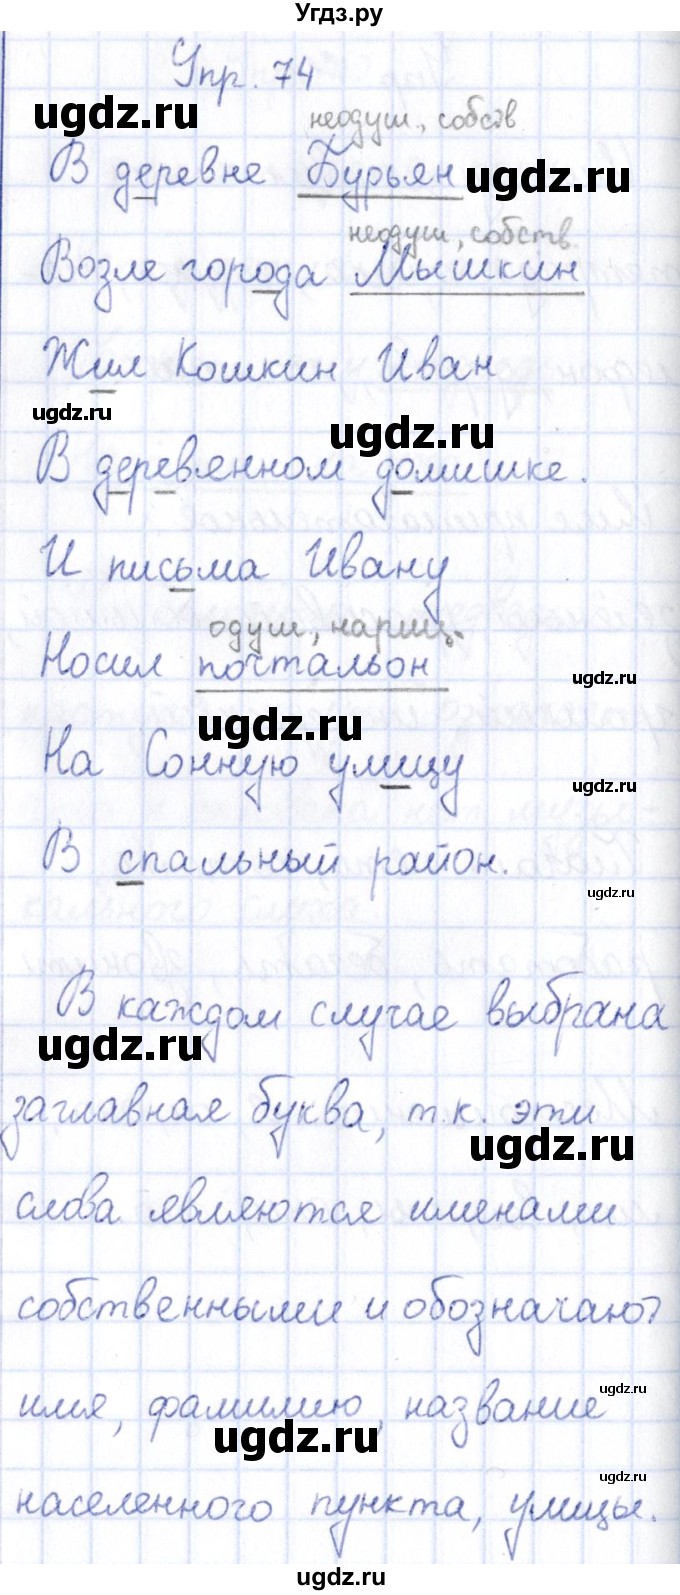 Угдз.ру
Упр. 74
ugdz.ru
неодуш., собств
В деревне Бурьян
ugdz.ru
неодуш., собств.
Возле города Мышкин
Жил Кошкин Иван
ugdz.ru
ugdz.ru
В деревянном домишке.
И письма Ивану
одуш., нариц.
Носил почтальон
ugdz.ru
ugdz.ru
На Сонную улицу
ugdz.ru
В спальный район.
ugdz.ru
В каждом случае выбрана
ugdz.ru
заглавная буква, т.к. эти
ugdz.ru
слова являются именами
собственными и обозначают
ugdz.ru
имя, фамилию, название
ugdz.ru
ugdz.ru
населенного пункта, улицы.
ugdz.ru